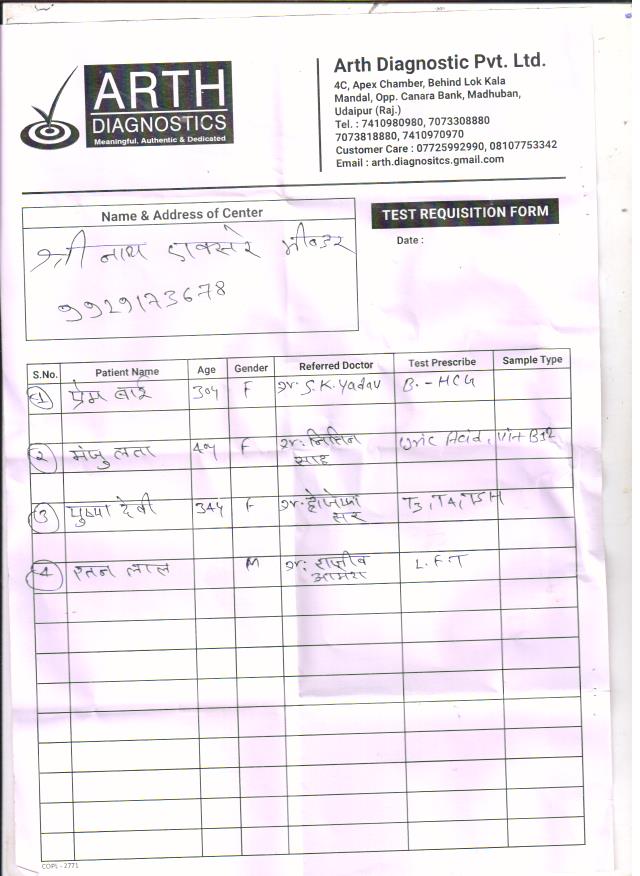 ARTH
DIAGNOSTICS
Meaningful, Authentic & Dedicated
Arth Diagnostic Pvt. Ltd.
4C, Apex Chamber, Behind Lok Kala
Mandal, Opp. Canara Bank, Madhuban,
Udaipur (Raj.)
Tel. : 7410980980, 7073308880
7073818880, 7410970970
Customer Care : 07725992990, 08107753342
Email : arth.diagnositcs.gmail.com
Name & Address of Center
TEST REQUISITION FORM
Date :
श्री नाथ भीण्डर
9929173678
S.No. Patient Name Age Gender Referred Doctor Test Prescribe Sample Type
1 प्रेम बाई 30y F Dr. S.K. Yadav B.-HCG
2 मंजु लता F डॉ. नितिन Uric Acid, Vit B12
साहू
3 पुष्पा देवी 34y F डॉ. T3, T4, TSH
सर
4 रतन लाल M डॉ. राजीव L.F.T
आमेटा
COPL - 2771